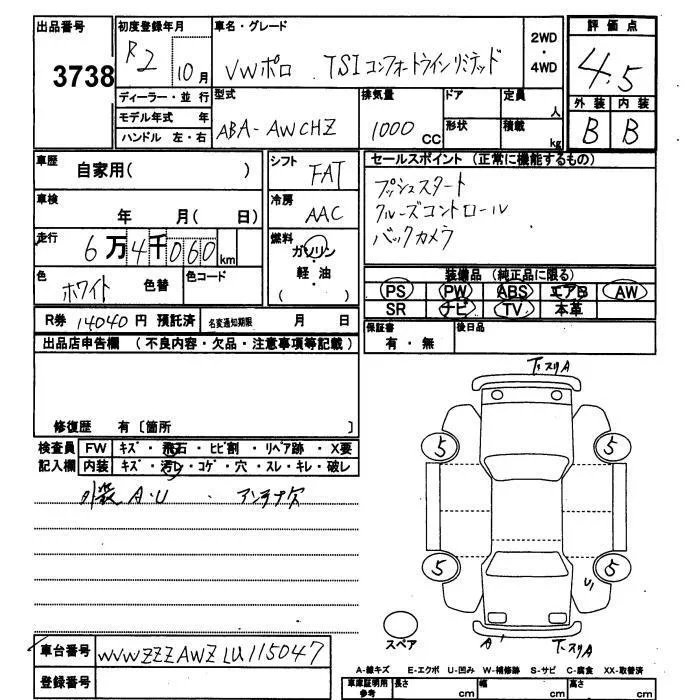 出品番号
3738
初度登録年月
R2 10月
車名・グレード
VWポロ TSIコンフォートラインリミテッド
2WD
・
4WD
評価点
4.5
外装 内装
B B
ディーラー・並行
モデル年式 年
ハンドル 左・右
型式
ABA-AWCHZ
排気量
1000 CC
ドア
形状
定員
人
積載
kg
車歴
自家用( )
車検
年 月( 日)
走行
6万4千060km
色
ホワイト 色替
色コード
シフト
FAT
冷房
AAC
燃料
ガソリン
軽・油
( )
セールスポイント (正常に機能するもの)
プッシュスタート
クルーズコントロール
バックカメラ
装備品 (純正品に限る)
PS PW ABS エアB AW
SR ナビ TV 本革
保証書
有・無
後日品
R券 14040円 預託済
名変通知期限 月 日
出品店申告欄 (不良内容・欠品・注意事項等記載)
修復歴 有〔箇所 〕
検査員
記入欄
FW キズ・飛石・ヒビ割・リペア跡・X要
内装 キズ・汚レ・コゲ・穴・スレ・キレ・破レ
外装A・U ・ アンテナ欠
下スリA
5 5
5 5
U1
A1
下スリA
スペア
車台番号
WVWZZZAWZLU115047
登録番号
A-線キズ E-エクボ U-凹み W-補修跡 S-サビ C-腐食 XX-取替済
車庫証明用
参考
長さ cm
幅 cm
高さ cm